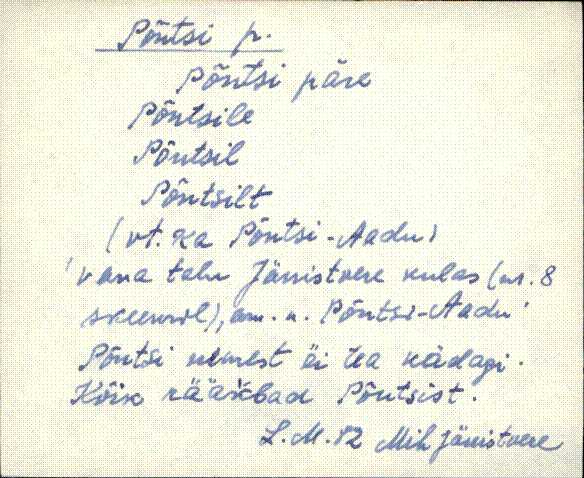 Põntsi p.
Põntsi päre
Põntsile
Põntsil
Põntsilt
(vt. ka Põntsi-Aadu)
'vana talu Järistvere külas (nr. 8
skeemil), am. n. Põntsi-Aadu'
Põntsi nimest äi tea kädagi.
Kõik rääkbad Põntsist.
L.M. 82 Mih Järistvere